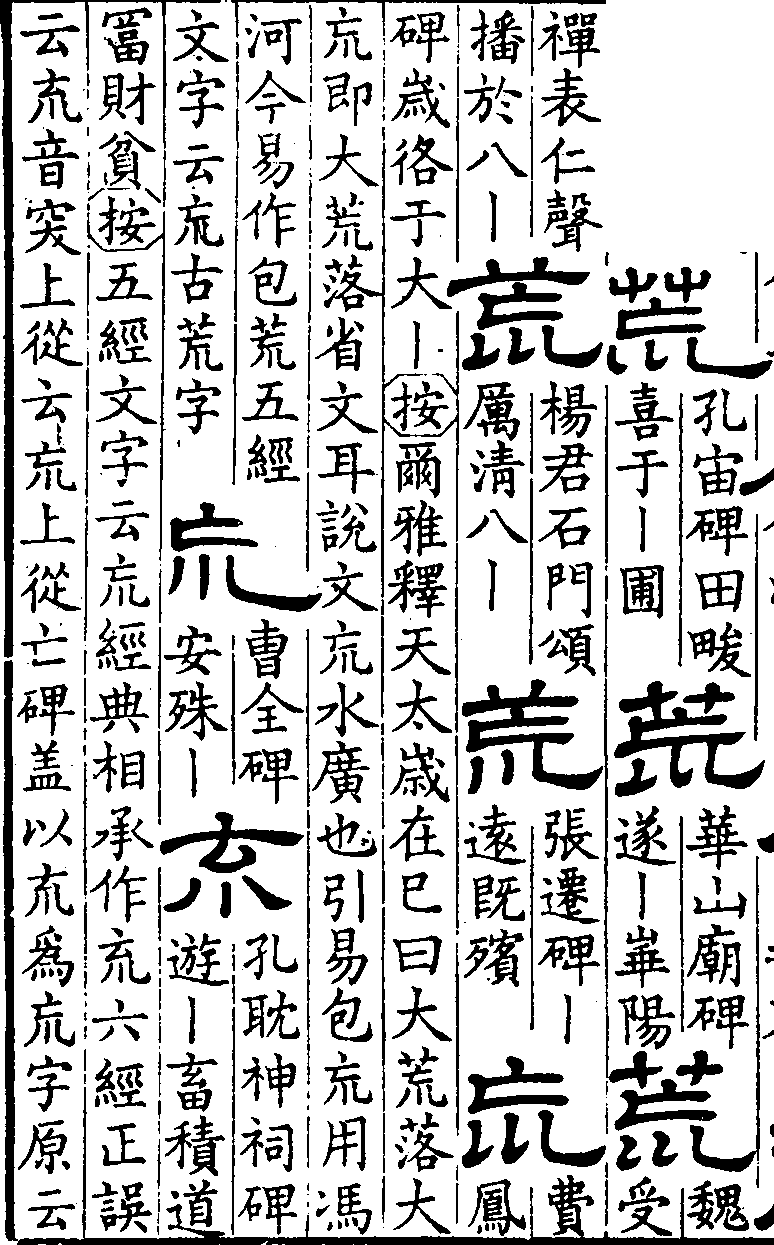 荒
孔宙碑田畯
喜于丨圃
荒
華山廟碑
遂丨崋陽
荒
魏
受
禪表仁聲
播於八丨
荒
楊君石門頌
厲清八丨
荒
張遷碑丨
遠既殯
巟
費
鳳
碑歲𢓜于大丨按爾雅釋天太歲在巳曰大荒落大
巟即大荒落省文耳說文巟水廣也引易包巟用馮
河今易作包荒五經
文字云巟古荒字
巟
曹全碑
安殊丨
㐬
孔耽神祠碑
遊丨畜積道
富財貧按五經文字云巟經典相承作㐬六經正誤
云㐬音突上從云巟上從亡碑盖以㐬爲巟字原云